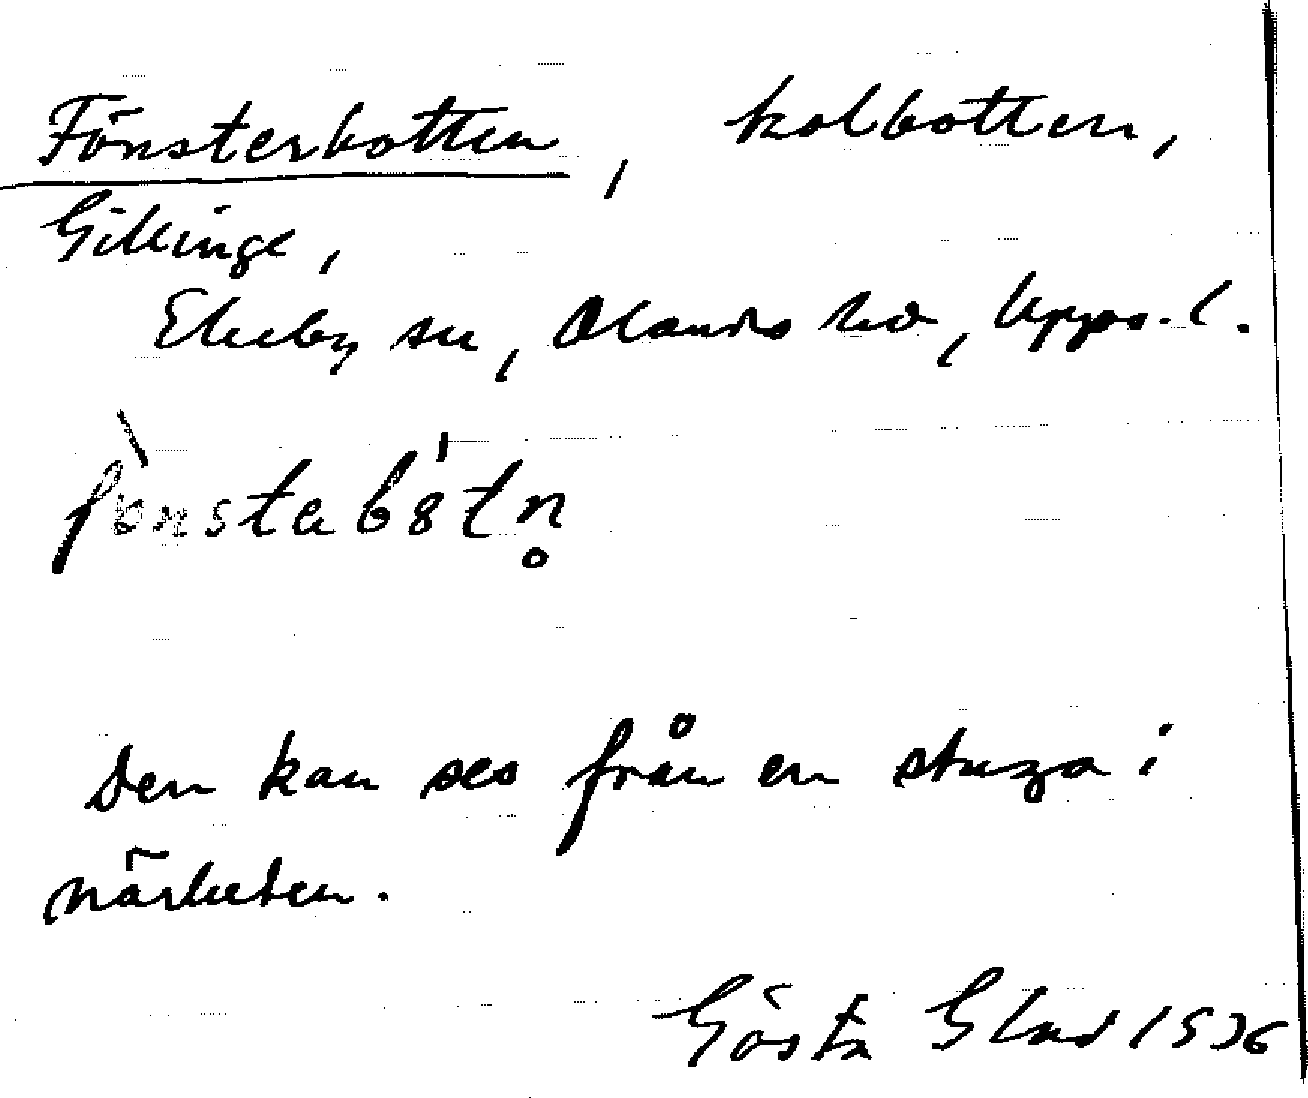 Fönsterbotten, kolbotten,
Gillinge,
Ekeby sn, Olands hd, Upps.l.
fönstabòtn̥
Den kan ses från en stuga i
närheten.
Gösta Glad 1936